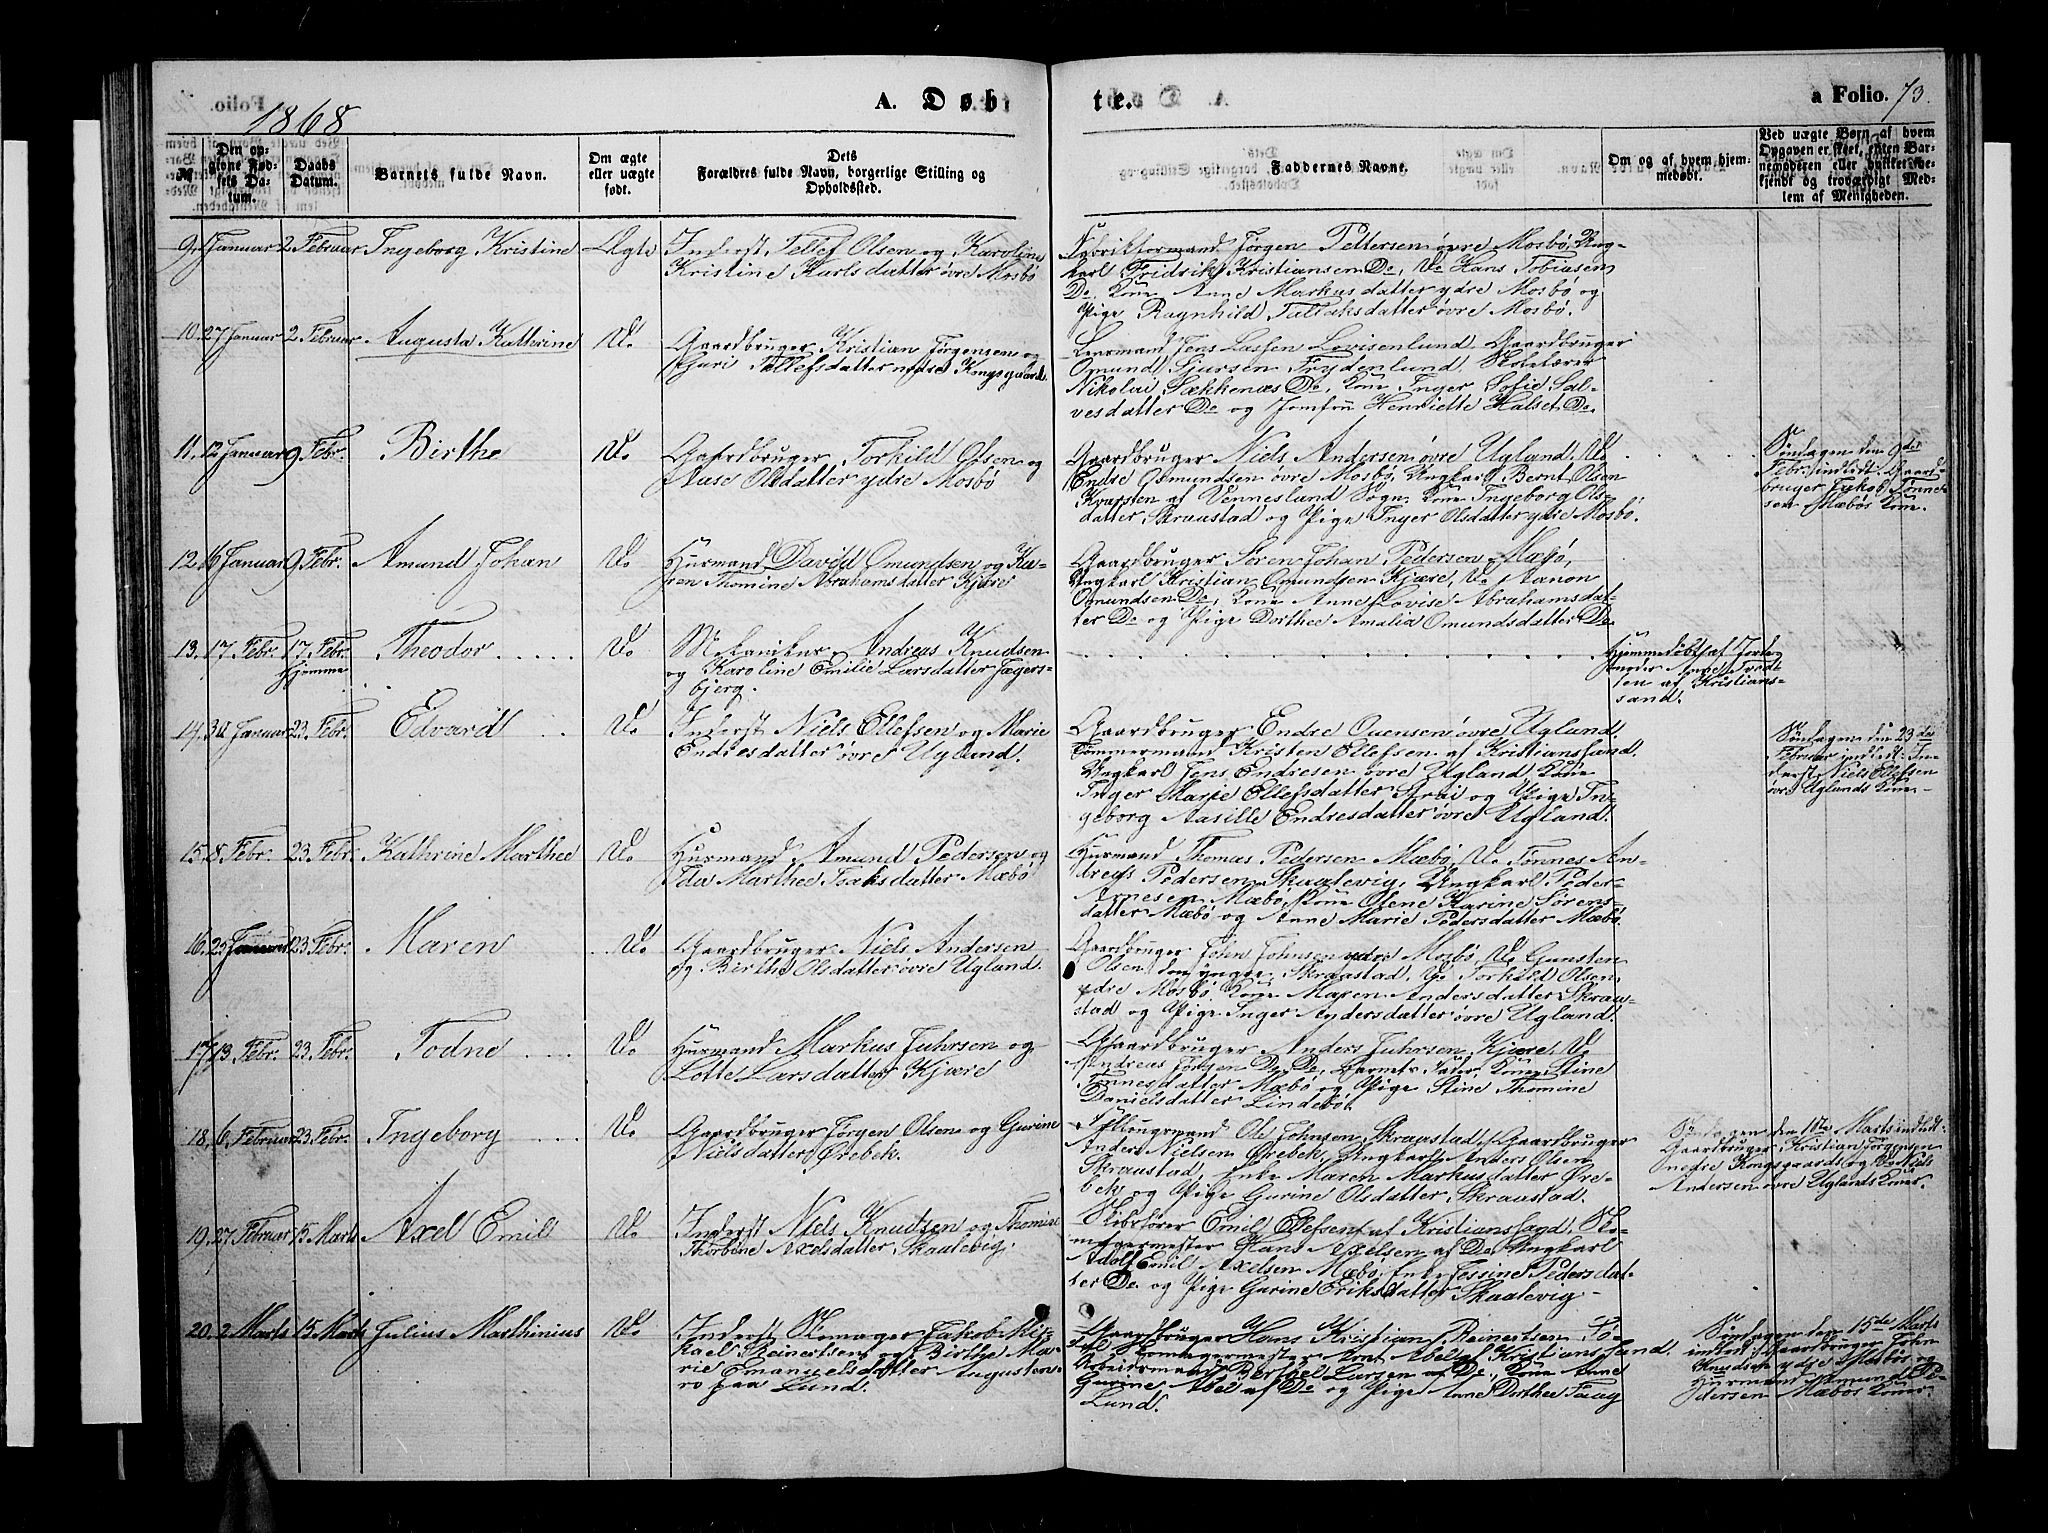 1868
A. Døbte.
a Folio. 73.
№
Den opgivne Fødsels Datum.
Daabs Datum.
Barnets fulde Navn.
Om ægte eller uægte født.
Dets Forældres fulde Navn, borgerlige Stilling og Opholdssted.
Faddernes Navne.
Om og af hvem hjemmedøbt.
Ved uægte Børn af hvem Opgaven er skeet, enten Barnemoderen eller hvilket bekjendt og troværdigt Medlem af Menigheden.
9. Januar 2 Februar Ingeborg Kristine Ægte
Inderst Tellef Olsen og Karoline
Kristine Karlsdatter øvre Mosbø
Fabrikformand Jørgen Pettersen øvre Mosbø, Ung-
karl Fredrik Kristiansen Do, Do Hans Tobiasen
Do, Kone Anne Markusdatter ydre Mosbø og
Pige Ragnhild Tallaksdatter øvre Mosbø.
10. 27 Januar 2 Februar Augusta Kathrine Do
Gaardbruger Kristian Jørgensen og
Guri Tellefsdatter nedre Kongsgaard
Lensmand Jens Lassen Lovisenlund, Gaardbruger
Omund Sjursen Frydenlund, Skolelærer
Nikolai Sækkenæs Do, Kone Inger Sofie Sal-
vesdatter Do og Jomfru Henriette Halset Do.
11. 12 Januar 9 Febr. Birthe Do
Gaardbruger Torkild Olsen og
Aase Olsdatter ydre Mosbø
Gaardbruger Niels Andersen øvre Ugland, Do
Endre Osmundsen øvre Mosbø, Ungkarl Bernt Olsen
Kvarsten af Venneslund Sogn, Kone Ingeborg Ols-
datter Skraastad og Pige Inger Olsdatter ydre Mosbø.
Søndagen den 9de
Febr. indledt: Gaard-
bruger Jakob Tønne-
sen Mæbøs Kone.
12. 16 Januar 9 Febr. Amund Johan Do
Husmand David Omundsen og Ka-
ren Thomine Abrahamsdatter Kjære
Gaardbruger Søren Johan Pedersen Mæbø,
Ungkarl Kristian Omundsen Kjære, Do Aanon
Omundsen Do, Kone Anne Lovise Abrahamsdat-
ter Do og Pige Dorthea Amalia Omundsdatter Do
13. 17 Febr. 17 Febr. Hjemme Theodor Do
Mekaniker Andreas Knudsen
og Karoline Emilie Larsdatter Jægers-
bjerg.
Hjemmedøbt af Jorde-
moder Anne Tredt-
ten af Kristians-
sand.
14. 30 Januar 23. Febr. Edvard Do
Inderst Niels Ellefsen og Marie
Endresdatter øvre Ugland.
Gaardbruger Endre Ouensen øvre Ugland.
Tømmermand Kristen Ellefsen af Kristianssand.
Ungkarl Jens Endresen øvre Ugland, Kone
Inger Marie Ellefsdatter Strai og Pige In-
geborg Aasille Endresdatter øvre Ugland.
Søndagen den 23de
Februar indledt: In-
derst Niels Ellefsen
øvre Uglands Kone
15. 8 Febr. 23 Febr. Kathrine Marthea Do
Husmand Amund Pedersen og
Ida Marthea Isaksdatter Mæbø
Husmand Thomas Pedersen Mæbø, Do Tønnes An-
dreas Pedersen Skaalevig, Ungkarl Peder
Arnesen Mæbø, Kone Olene Karine Sørens-
datter Mæbø og Anne Marie Pedersdatter Mæbø.
16. 25 Januar 23 Febr. Maren Do
Gaardbruger Niels Andersen
og Birthe Olsdatter øvre Ugland.
Gaardbruger John Johnsen ydre Mosbø, Do Gunsten
Olsen den yngre Skraastad, Do Torkild Olsen
ydre Mosbø, Kone Maren Andersdatter Skraa-
stad og Pige Inger Andersdatter øvre Ugland.
17. 13 Febr. 23. Febr. Todne Do
Husmand Markus Juhrsen og
Lotte Larsdatter Kjære
Gaardbruger Anders Juhrsen Kjære, Do
Andreas Jørgen Do Do, Barnets Fader, Kone Stine
Tønnesdatter Mæbø og Pige Stine Thomine
Danielsdatter Lindebø.
18. 6 Februar 23 Febr. Ingeborg Do
Gaardbruger Jørgen Olsen og Gurine
Nielsdatter Ørebek.
Ole Johnsen Skraastad, Gaardbruger
Anders Nielsen Ørebek, Ungkarl Anders Olsen
Skraastad, Enke Maren Markusdatter Øre-
bek og Pige Gurine Olsdatter Skraastad.
Søndagen den 1ste Marts indledt:
Gaardbruger Kristian Jørgensen
nedre Kongsgaards og Do Niels
Andersen øvre Uglands Koner.
19. 27 Februar 15 Marts Axel Emil Do
Inderst Niels Knudsen og Thomine
Thorbine Axelsdatter Skaalevig.
Skibsfører Emil Ellefsen af Kristianssand, Sko-
magermester Hans Axelsen af Do, Ungkarl
Adolf Emil Axelsen Mæbø, Enke Jessine Pedersdat-
ter Do og Pige Gurine Eriksdatter Skaalevig
20. 2 Marts 15 Marts Julius Marthinius Do
Inderst Skomager Jakob Mi-
kael Reinertsen og Birthe Ma-
rie Emanuelsdatter Augustow-
ro paa Lund.
Gaardbruger Hans Kristian Reinertsen
Skomagermester Abel af Kristianssand.
Arbeidsmand Berthel Larsen af Do, Kone Anne
Gurine Abel af Do og Pige Anne Dorthea Faag
Lund.
Søndagen den 15de Marts
indledt: Gaardbruger John
Knudsen ydre Mosbøs og
Husmand Amund Pe-
dersen Mæbøs Koner.